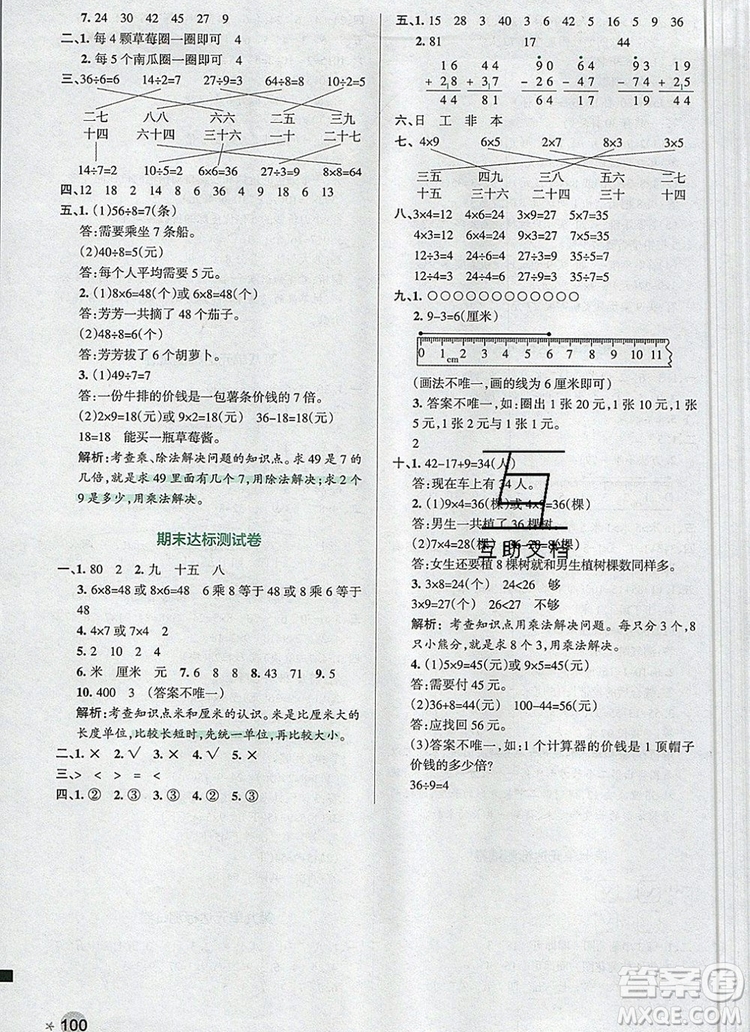 7. 24 30 42 9 29 48
二、1. 每 4 颗草莓圈一圈即可 4
2. 每 5 个南瓜圈一圈即可 4
三、36÷6=6 14÷2=7 27÷9=3 64÷8=8 10÷2=5
二七 八八 六六 二五 三九
十四 六十四 三十六 一十 二十七
14÷7=2 10÷5=2 6×6=36 27÷3=9 8×8=64
四、12 18 2 14 9 36 18 9 6 13
五、1. (1)56÷8=7(条)
答:需要乘坐 7 条船。
(2)40÷8=5(元)
答:每个人平均需要 5 元。
2. (1)8×6=48(个)或 6×8=48(个)
答:芳芳一共摘了 48 个茄子。
(2)48÷8=6(个)
答:芳芳拔了 6 个胡萝卜。
3. (1)49÷7=7
答:一份牛排的价钱是一包薯条价钱的 7 倍。
(2)2×9=18(元)或 9×2=18(元) 36-18=18(元)
18=18 能买一瓶草莓酱。
解析:考查乘、除法解决问题的知识点。求 49 是 7 的
几倍,就是求 49 里面有几个 7,用除法解决;求 2 个
9 是多少,用乘法解决。
期末达标测试卷
一、1. 80 2 2. 九 十五 八
3. 6×8=48 或 8×6=48 6 乘 8 等于 48 或 8 乘 6 等于
48
4. 4×7 或 7×4 4
5. 2 10 2 4
6. 米 厘米 元 7. 6 8 8. 43 71 9. 5
10. 400 3 (答案不唯一)
解析:考查知识点米和厘米的认识。米是比厘米大的
长度单位,比较长短时,先统一单位,再比较大小。
二、1. × 2. √ 3. × 4. √ 5. ×
三、> < = = <
四、1. ② 2. ② 3. ③ 4. ② 5. ③
100
五、1. 15 9 28 42 8 63 9 9 36
2. 81 17 44
16 44 90 64 93 19
+ 28 - 8 - 46 + 17 - 74 + 25
44 81 44 81 19 44
六、日 工 非 本
七、4×9 6×5 2×7 8×3 3×5
三五 四九 三八 五六 二七
十五 三十六 二十四 三十 十四
八、3×4=12 4×6=24 3×9=27 5×7=35
4×3=12 6×4=24 9×3=27 7×5=35
12÷3=4 24÷4=6 27÷3=9 35÷5=7
12÷4=3 24÷6=4 27÷9=3 35÷7=5
九、1. ○○○○○○○○○○○○
2. 9-3=6(厘米)
0 1 cm 2 3 4 5 6 7 8 9 10 11
(画法不唯一,画的线为 6 厘米即可)
3. 答案不唯一,如:圈出 1 张 20 元,1 张 10 元,1 张
5 元,1 张 2 元,1 张 1 元。
2
十、1. 42-17+9=34(人)
答:现在车上有 34 人。
2. (1)9×4=36(棵)或 4×9=36(棵)
答:男生一共植了 36 棵树。
(2)4×7=28(棵) 36-28=8(棵)
互助文档
答:女生还要植 8 棵树就和男生植树棵数同样多。
3. 3×8=24(个) 24<26 够
3×9=27(个) 26<27 不够
解析:考查知识点用乘法解决问题。每只分 3 个,8
只小熊分,就是求 8 个 3,用乘法解决。
4. (1)5×9=45(元)或 9×5=45(元)
答:需要付 45 元。
(2)36+8=44(元) 100-44=56(元)
答:应找回 56 元。
(3)答案不唯一,如:1 个计算器的价钱是 1 顶帽子
价钱的多少倍?
36÷9=4
答案圈
MXQE.COM